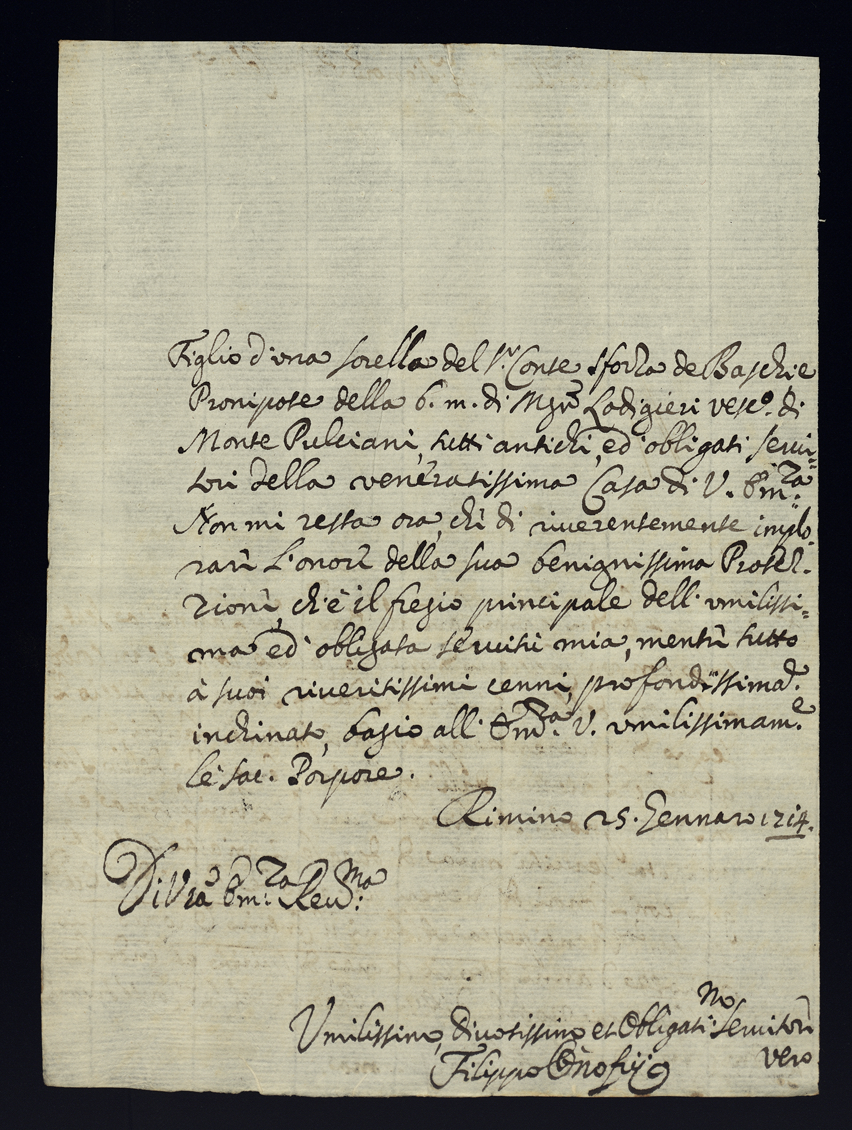 Figlio d'una sorella del Sr. Conte Sforza de Baschi e
Pronipote della b. m. di Mgre Lodigieri vesco. di
Monte Pulciani, tutti antichi, ed' obligati servi=
tori della venératissima Casa di V. Emza.
Non mi resta ora, che di riverentemente implo-
rare l'onore della sua benignissima Protet-
zione, ch'è il fregio principale dell' umilissi=
ma ed' obligata servitù mia, mentre tutto
à suoi riveritissimi cenni, profondissimate.
inchinato, bagio all' Emza. V. umilissimame.
le sac. Porpore.
Rimino 25. Gennaro 1714.
Di Vra Emza. Revma.
Umilissimo, divotissimo et Obligatimo. Servitore
vero
Filippo Onofrij